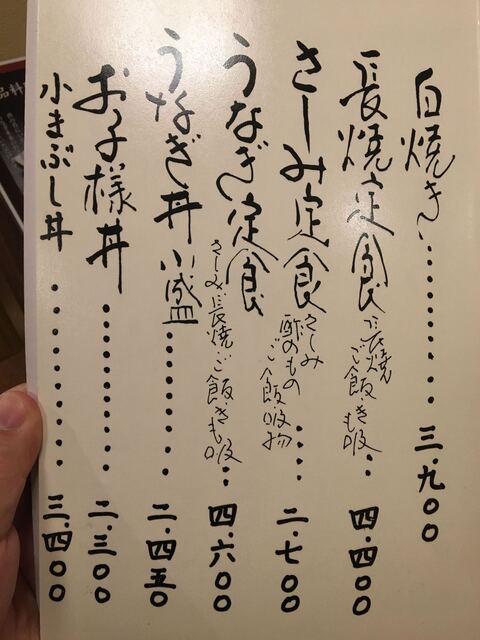 白焼き
三.九〇〇
長焼定食
長焼
ご飯・きも吸
四.四〇〇
さしみ定食
さしみ
酢のもの
ご飯・吸物
二.七〇〇
うなぎ定食
さしみ・長焼・ご飯・きも吸
四.六〇〇
うなぎ丼小盛
二.四五〇
お子様丼
二.三〇〇
小まぶし丼
三.四〇〇